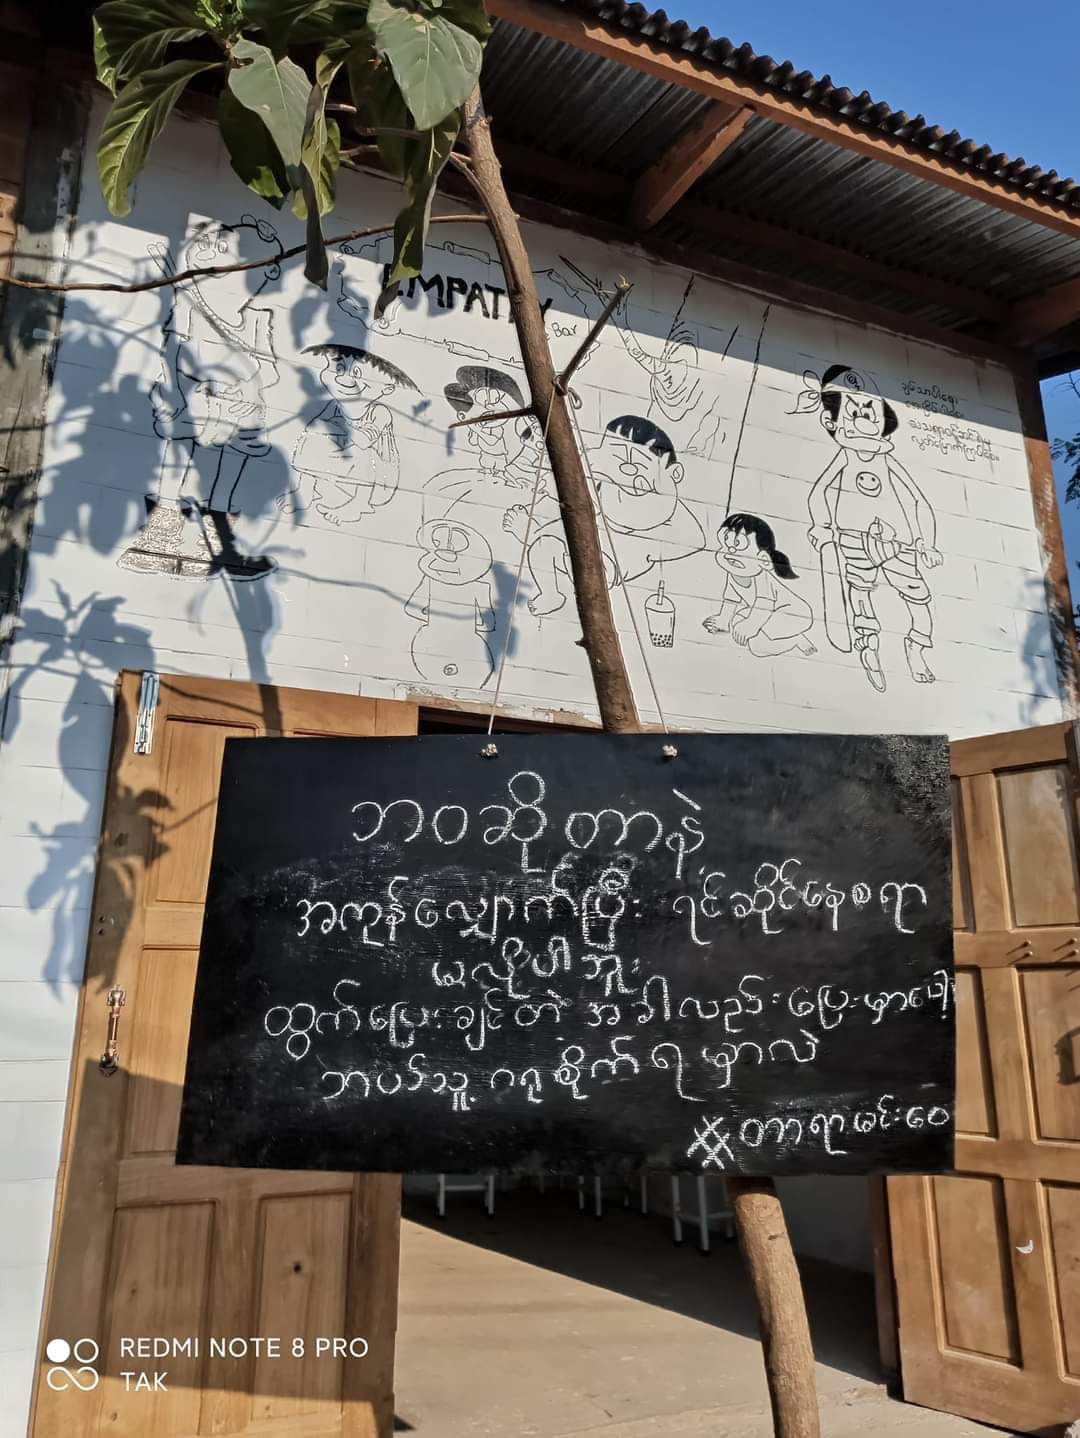 EMPATHY
Bar
ဘဝဆိုတာနဲ့
အကုန်လျှောက်ပြီး ရင်ဆိုင်နေစရာ
မလိုပါဘူး
ထွက်ပြေးချင်တဲ့အခါလည်းပြေးမှာပေါ့
ဘယ်သူ့ဂရုစိုက်ရမှာလဲ
တာရာမင်းဝေ
REDMI NOTE 8 PRO
TAK